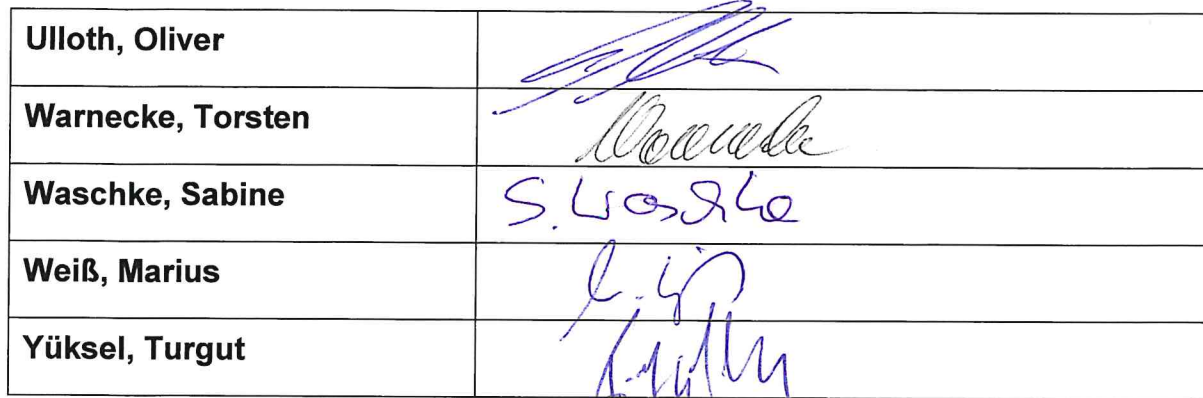 Ulloth, Oliver
Warnecke, Torsten
Waschke, Sabine
S. Waschke
Weiß, Marius
Yüksel, Turgut